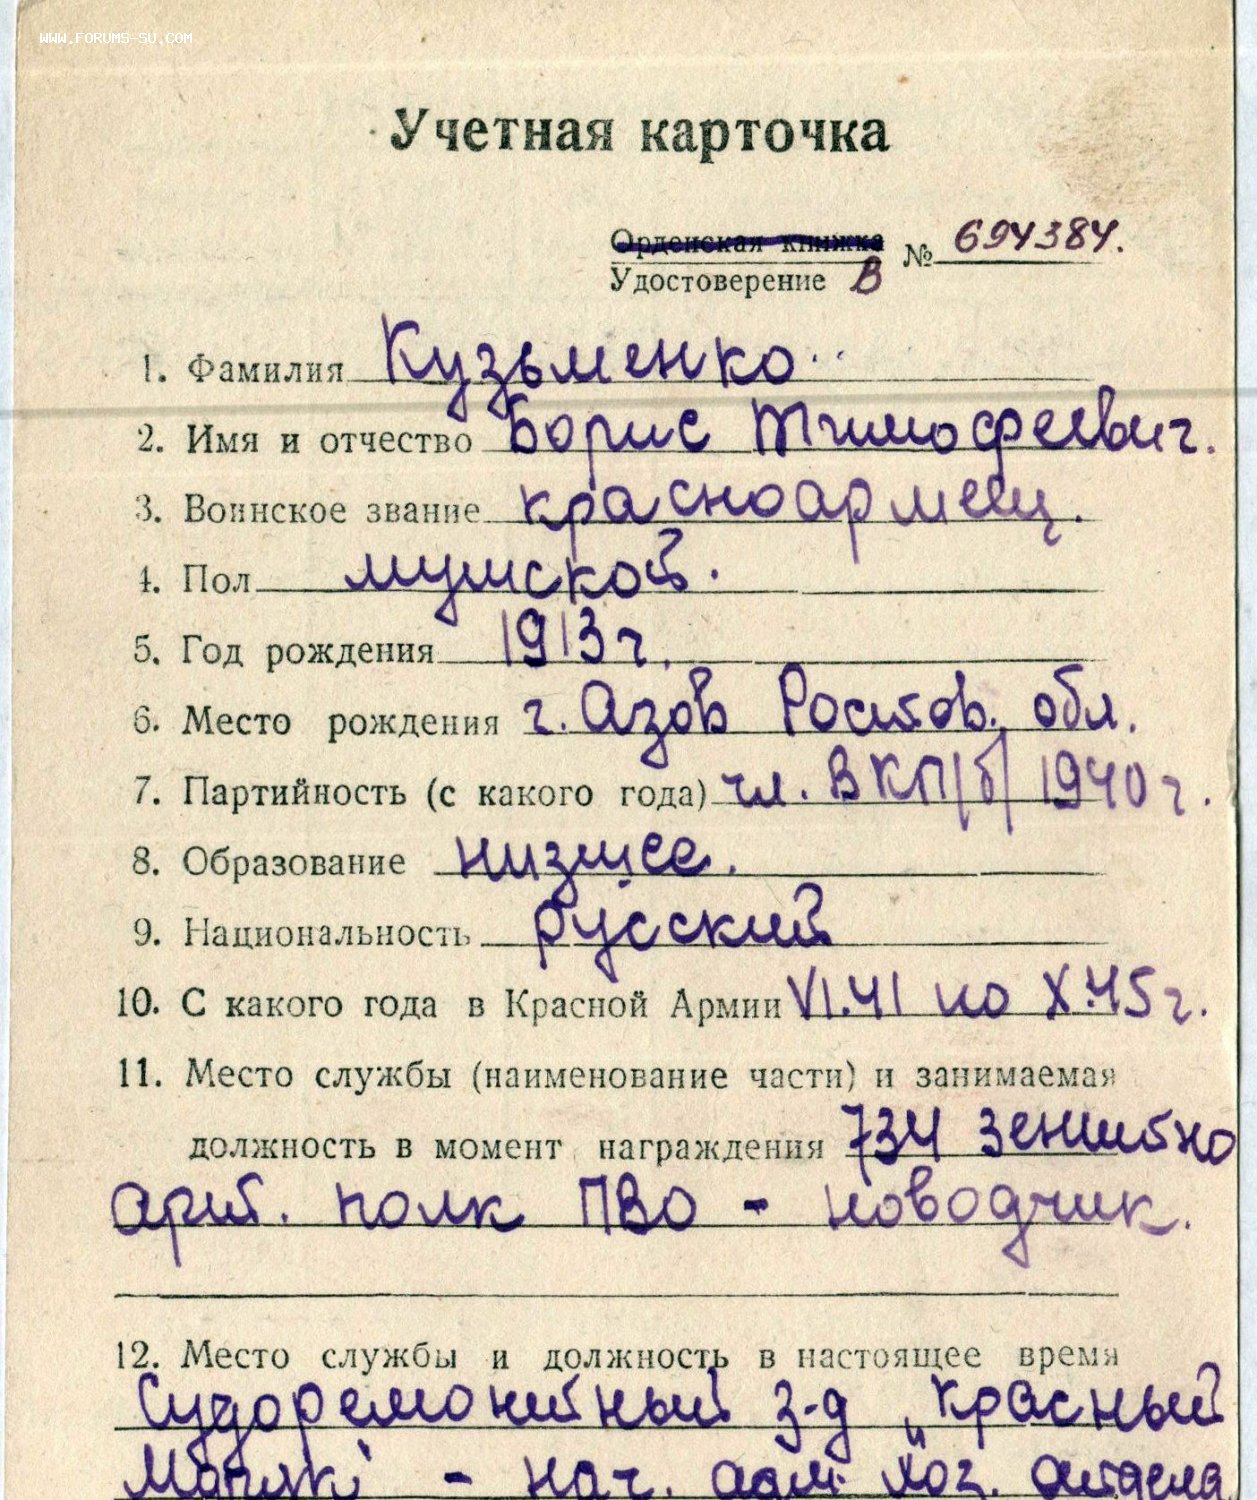 WWW.FORUMS-SU.COM
Учетная карточка
Орденская книжка
Удостоверение В № 694384.
1. Фамилия Кузьменко
2. Имя и отчество Борис Тимофеевич.
3. Воинское звание красноармеец.
4. Пол мужской.
5. Год рождения 1913 г.
6. Место рождения г. Азов Ростов. обл.
7. Партийность (с какого года) чл. ВКП/б/ 1940 г.
8. Образование низшее.
9. Национальность русский
10. С какого года в Красной Армии VI.41 по X.45 г.
11. Место службы (наименование части) и занимаемая
должность в момент награждения 734 зенитно
арт. полк ПВО - наводчик.
12. Место службы и должность в настоящее время
Судоремонтный з-д „Красный
Маяк" - нач. адм. хоз. отдела